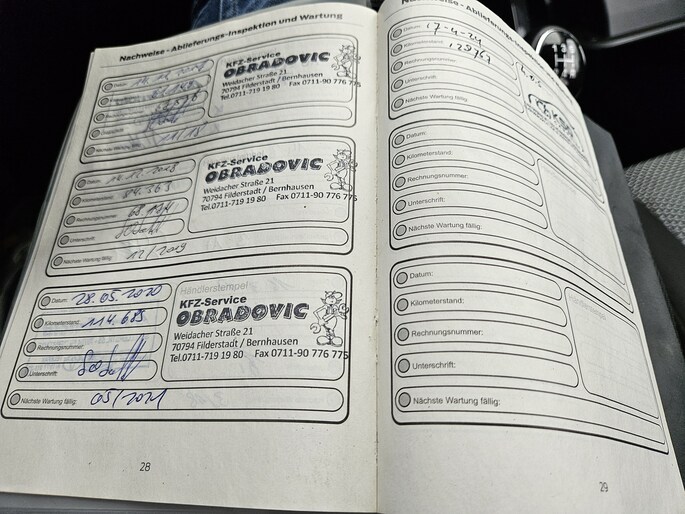 Nachweise - Ablieferungs-Inspektion und Wartung
Datum:
KFZ-Service
OBRADOVIC
Weidacher Straße 21
70794 Filderstadt / Bernhausen
Tel.0711-719 19 80 Fax 0711-90 776 775
Datum:
Kilometerstand:
Rechnungsnummer:
Unterschrift:
Nächste Wartung fällig: 12/2019
KFZ-Service
OBRADOVIC
Weidacher Straße 21
70794 Filderstadt / Bernhausen
Tel.0711-719 19 80 Fax 0711-90 776 775
Datum: 28.05.2020
Kilometerstand: 114.683
Rechnungsnummer:
Unterschrift:
Nächste Wartung fällig: 05/2021
Händlerstempel
KFZ-Service
OBRADOVIC
Weidacher Straße 21
70794 Filderstadt / Bernhausen
Tel.0711-719 19 80 Fax 0711-90 776 775
28
Nachweise - Ablieferungs-Inspektion
Datum: 17-4-21
Kilometerstand:
Rechnungsnummer:
Unterschrift:
Nächste Wartung fällig:
Datum:
Kilometerstand:
Rechnungsnummer:
Unterschrift:
Nächste Wartung fällig:
Datum:
Kilometerstand:
Rechnungsnummer:
Unterschrift:
Nächste Wartung fällig:
29